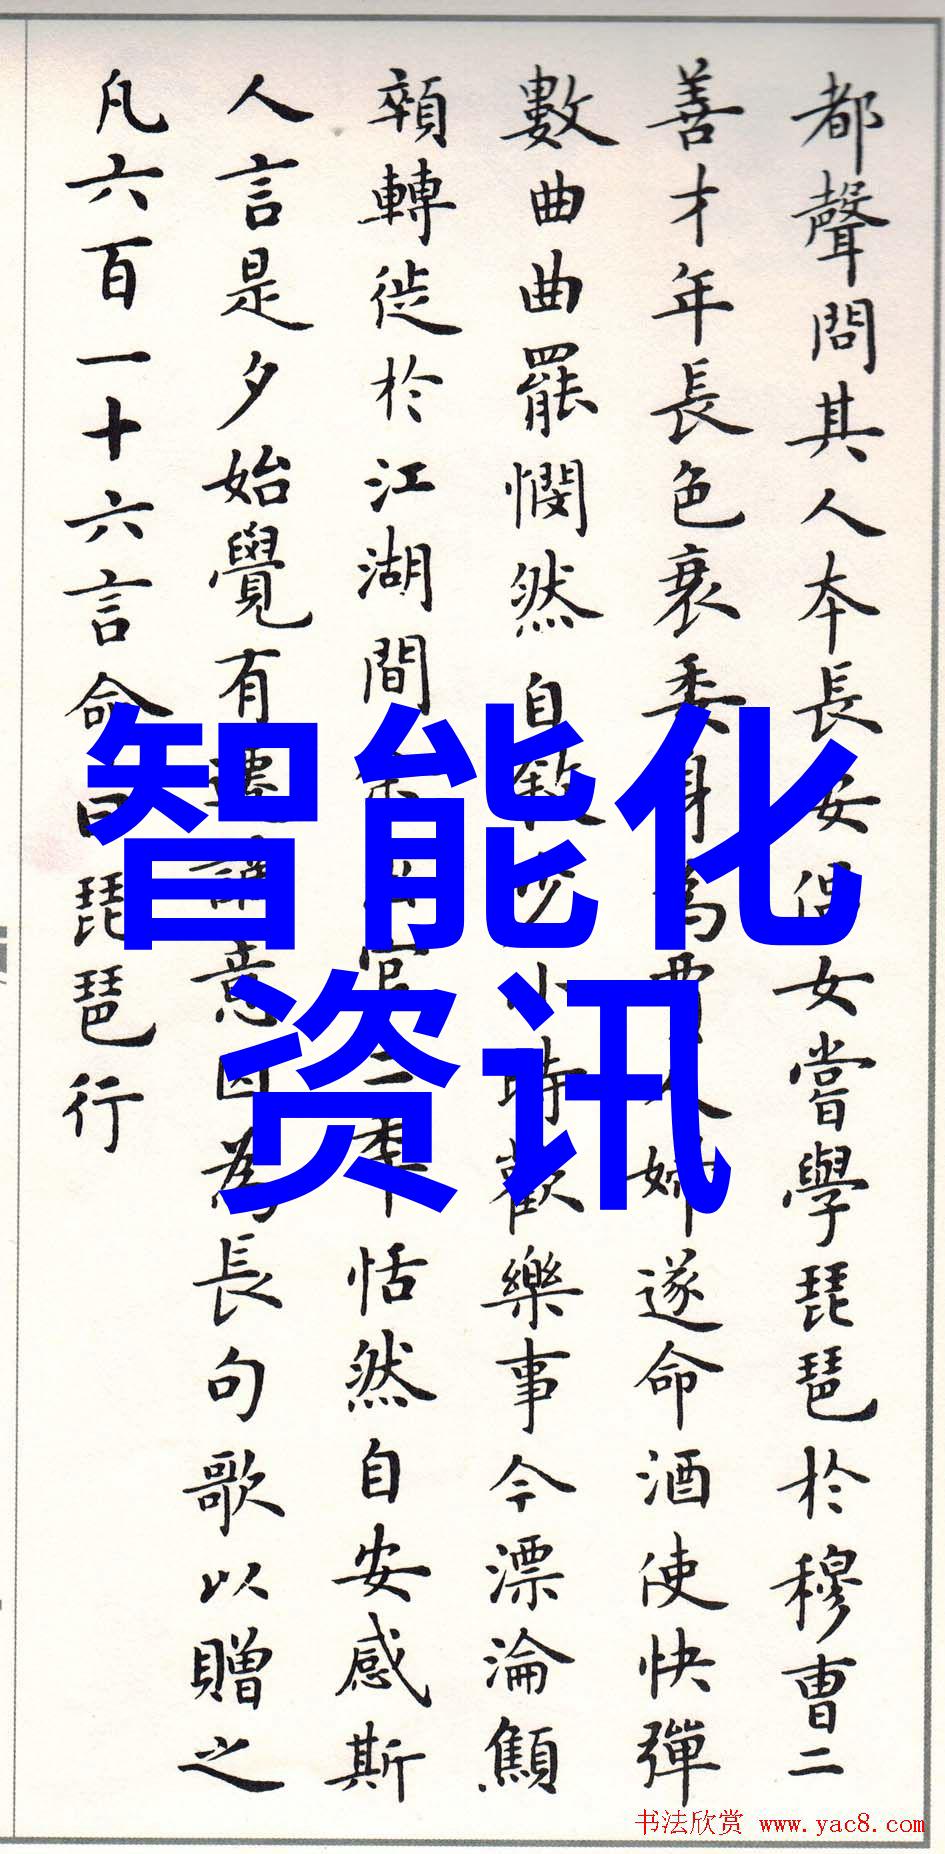 都聲問其人本長安倡女嘗學琵琶於穆曹二
善才年長色衰委身為賈人婦遂命酒使快彈
數曲曲罷憫然自敘少小時歡樂事今漂淪顦
顇轉徙於江湖間余出官二年恬然自安感斯
人言是夕始覺有遷謫意因為長句歌以贈之
凡六百一十六言命曰琵琶行
智能化
资讯
书法欣赏 www.yac8.com